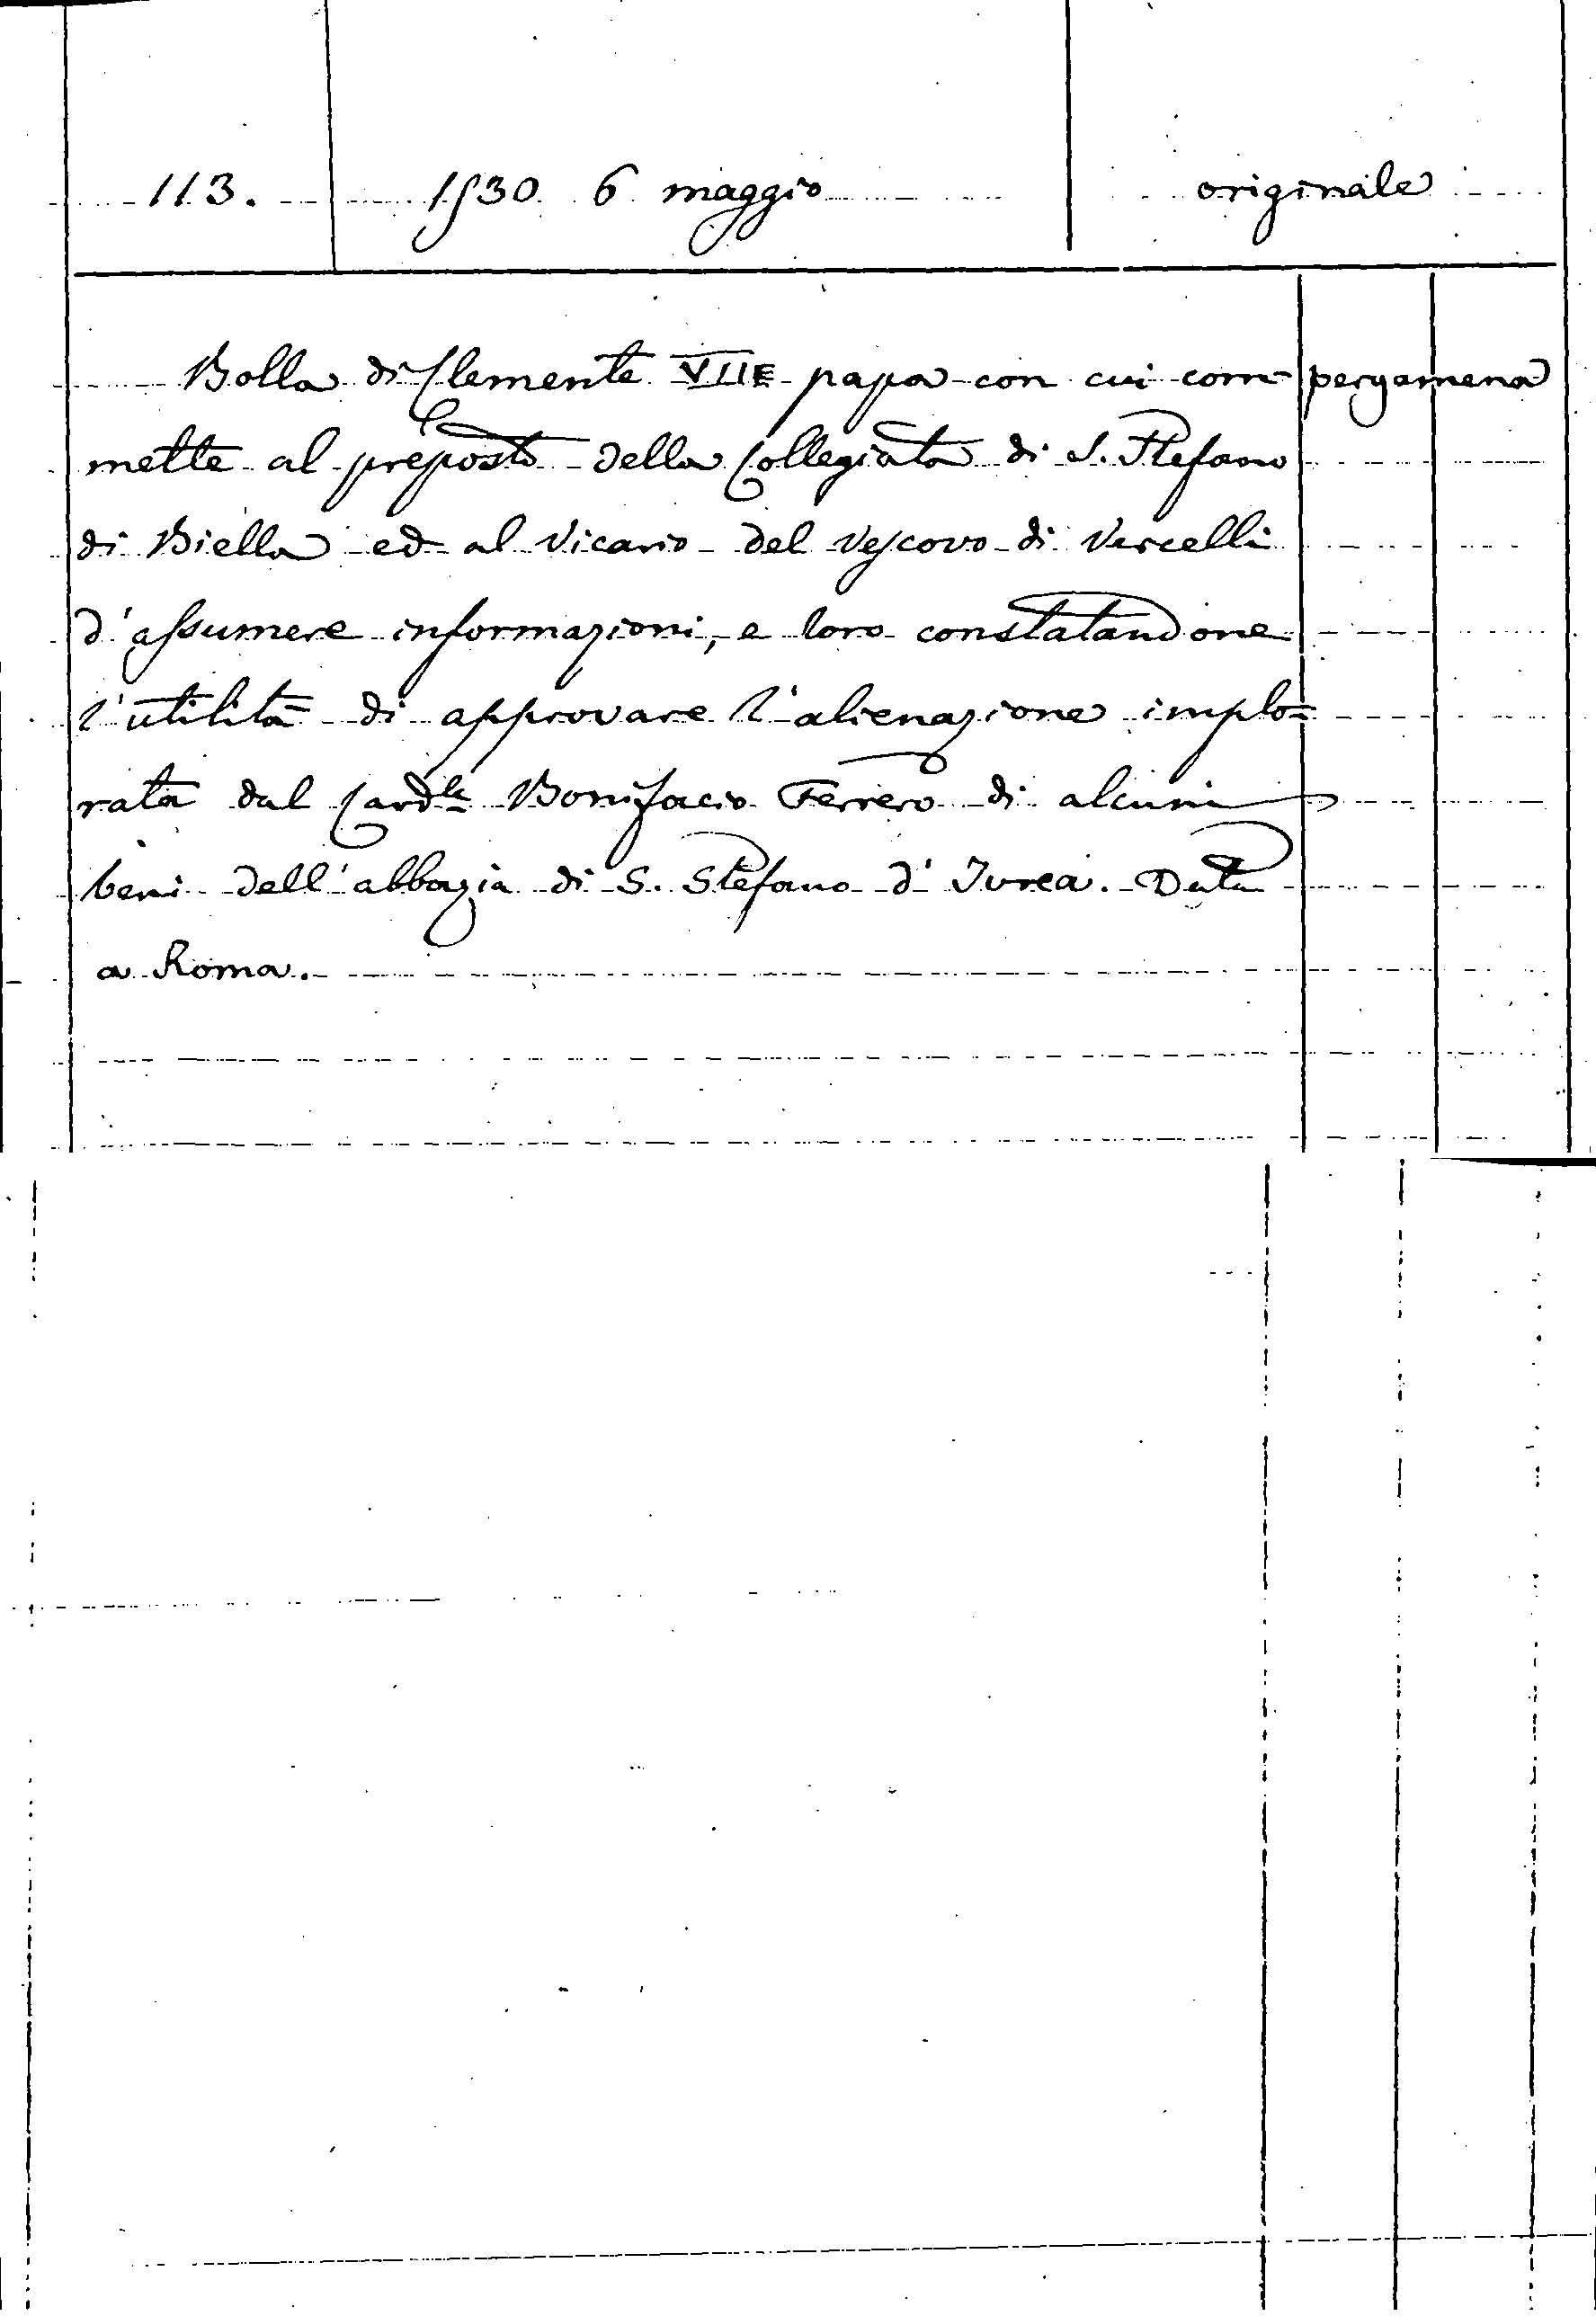 113. 1530 6 maggio originale
Bolla di Clemente VII papa con cui com- pergamena
mette al preposto della Collegiata di S. Stefano
di Biella ed al Vicario del Vescovo di Vercelli
d'assumere informazioni, e loro constatandone
l'utilità di approvare l'alienazione implo=
rata dal Cardle Bonifacio Ferrero di alcuni
beni dell'abbazia di S. Stefano d'Ivrea. Data
a Roma.